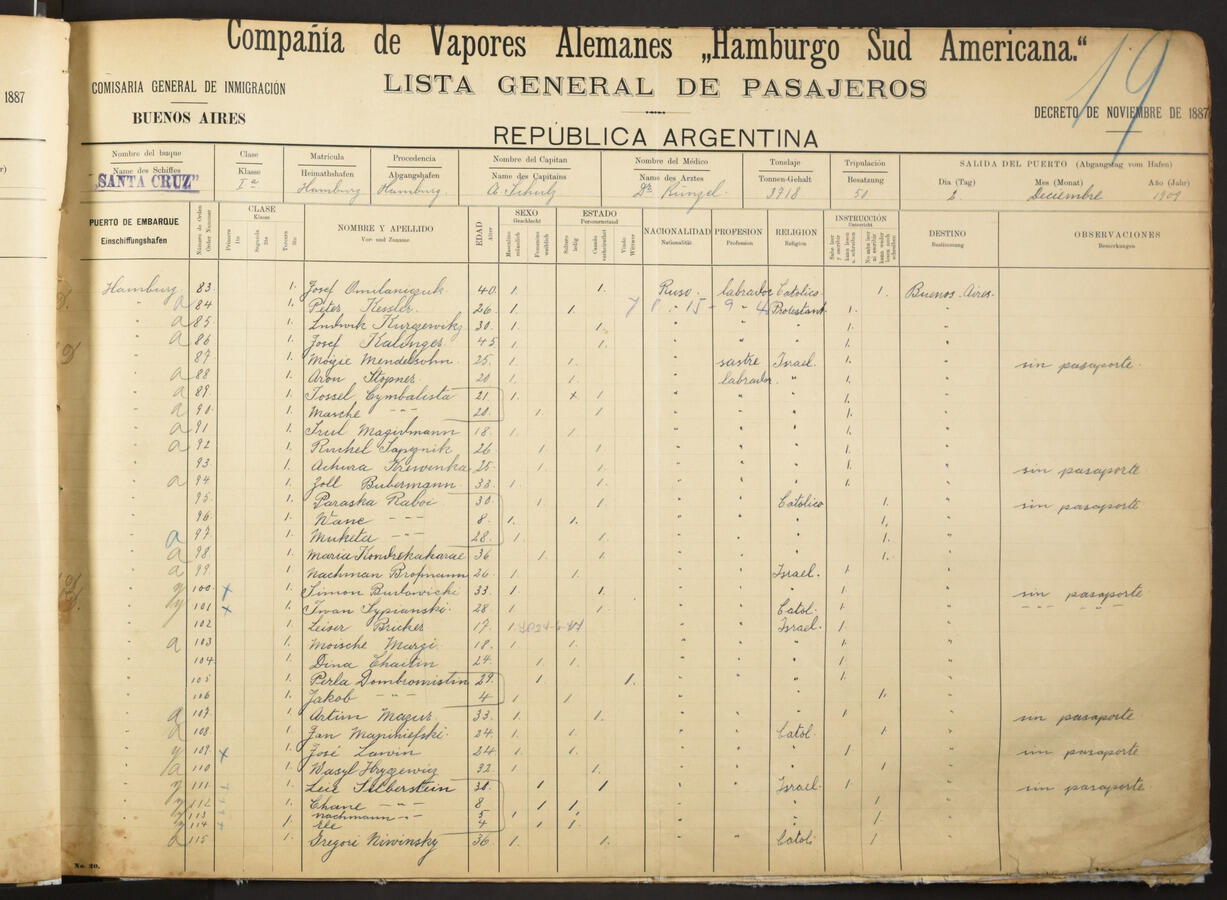 Compañía de Vapores Alemanes „Hamburgo Sud Americana.“
19
COMISARIA GENERAL DE INMIGRACIÓN
LISTA GENERAL DE PASAJEROS
1887
BUENOS AIRES
DECRETO DE NOVIEMBRE DE 1887
REPÚBLICA ARGENTINA
Nombre del buque Clase Matrícula Procedencia Nombre del Capitan Nombre del Médico Tonelaje Tripulación SALIDA DEL PUERTO (Abgangstag vom Hafen)
Name des Schiffes Klasse Heimathshafen Abgangshafen Name des Capitains Name des Arztes Tonnen-Gehalt Besatzung Día (Tag) Mes (Monat) Año (Jahr)
„SANTA CRUZ” Iª Hamburg Hamburg. A Schulz Dr. Künzel. 3918 50 2. Deciembre 1909
PUERTO DE EMBARQUE Einschiffungshafen
Número de Orden Order Nummer
CLASE Klasse Primera 1te Segunda 2te Tercera 3te
NOMBRE Y APELLIDO Vor- und Zuname
EDAD Alter
SEXO Geschlecht Masculino männlich Femenino weiblich
ESTADO Personenstand Soltero ledig Casado verheirathet Viudo Wittwer
NACIONALIDAD Nationalität
PROFESION Profession
RELIGION Religion
INSTRUCCIÓN Unterricht
DESTINO Bestimmung
OBSERVACIONES Bemerkungen
Hamburg 83 1. Josef Omilaniczuk 40. 1. 1. Ruso. labrador Catolico. 1. Buenos-Aires.
a 84 1. Peter Kessler. 26 1. 1. Protestant. 1.
a 85 1. Ludwik 30. 1. 1. 1.
a 86 1. Josef Kalinger 45 1. 1. 1.
87 1. Mojzie Mendelsohn. 25. 1. 1. sastre Israel. 1. sin pasaporte.
a 88 1. Aron Stopner. 20 1. 1. labrador. 1.
a 89 1. Jossel Cymbalista 21 1. x 1 1.
a 90 1. Masche 20. 1 1. 1.
a 91 1. Magidmann 18. 1. 1. 1.
a 92 1. Ruchel 26 1. 1. 1.
93 1. Krewenka 25. 1. 1. 1. sin pasaporte
a 94 1. Zoll Bubermann. 33. 1. 1. 1.
95 1. Paraska Raboi 30. 1. 1. Catolico 1. sin pasaporte
96 1. Wane 8. 1. 1. 1.
a 97 1. 28. 1. 1. 1.
a 98 1. Maria 36 1. 1. 1.
a 99 1. Nachman 26 1. 1. Israel. 1
y 100 x 1. Simon 33. 1. 1. 1. sin pasaporte
y 101 x 1. Iwan Sypianski. 28. 1 1. Catol. 1.
102 1. Leiser Bricker 17 1. Israel. 1.
a 103 1. Moische Margi. 18. 1. 1. 1.
104 1. Dina Chaitin 24. 1 1. 1.
105 1. Perla 29. 1. 1. 1.
106 1. Jakob 4 1 1 1.
a 107 1. Artim Mazur. 33. 1 1. 1 sin pasaporte
a 108 1. Jan 24. 1. 1. Catol. 1
y 109 x 1. José Lawin 24 1. 1. 1 sin pasaporte
a 110 1. Wasyl 32. 1 1. 1
y 111 1. Silberstein 30. 1 1 Israel. 1. sin pasaporte
y 112 Chane 8 1 1. 1
y 113 Nachmann 5 1. 1. 1
y 114 4 1 1. 1
a 115 1. Gregori Niwinsky 36 1. 1. Catol. 1
No. 20.